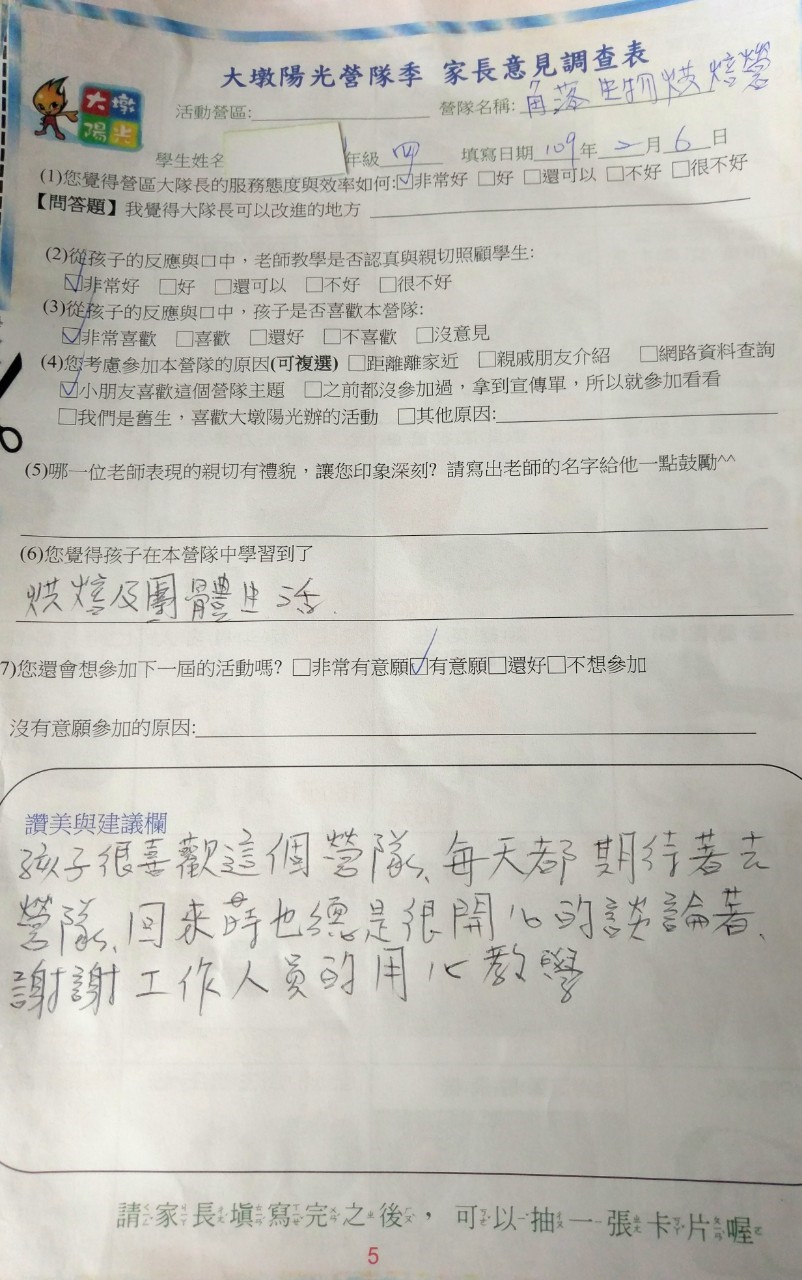 大墩陽光營隊季 家長意見調查表
大墩
陽光
活動營區: 營隊名稱: 角落生物烘焙營
學生姓名 年級 四 填寫日期 109 年 2 月 6 日
(1)您覺得營區大隊長的服務態度與效率如何:☑非常好 □好 □還可以 □不好 □很不好
【問答題】我覺得大隊長可以改進的地方
(2)從孩子的反應與口中，老師教學是否認真與親切照顧學生:
☑非常好 □好 □還可以 □不好 □很不好
(3)從孩子的反應與口中，孩子是否喜歡本營隊:
☑非常喜歡 □喜歡 □還好 □不喜歡 □沒意見
(4)您考慮參加本營隊的原因(可複選) □距離離家近 □親戚朋友介紹 □網路資料查詢
☑小朋友喜歡這個營隊主題 □之前都沒參加過，拿到宣傳單，所以就參加看看
□我們是舊生，喜歡大墩陽光辦的活動 □其他原因:
(5)哪一位老師表現的親切有禮貌，讓您印象深刻? 請寫出老師的名字給他一點鼓勵^^
(6)您覺得孩子在本營隊中學習到了
烘焙及團體生活.
7)您還會想參加下一屆的活動嗎? □非常有意願☑有意願□還好□不想參加
沒有意願參加的原因:
讚美與建議欄
孩子很喜歡這個營隊、每天都期待著去
營隊、回來時也總是很開心的談論著、
謝謝工作人員的用心教學
請家長填寫完之後，可以抽一張卡片喔
5